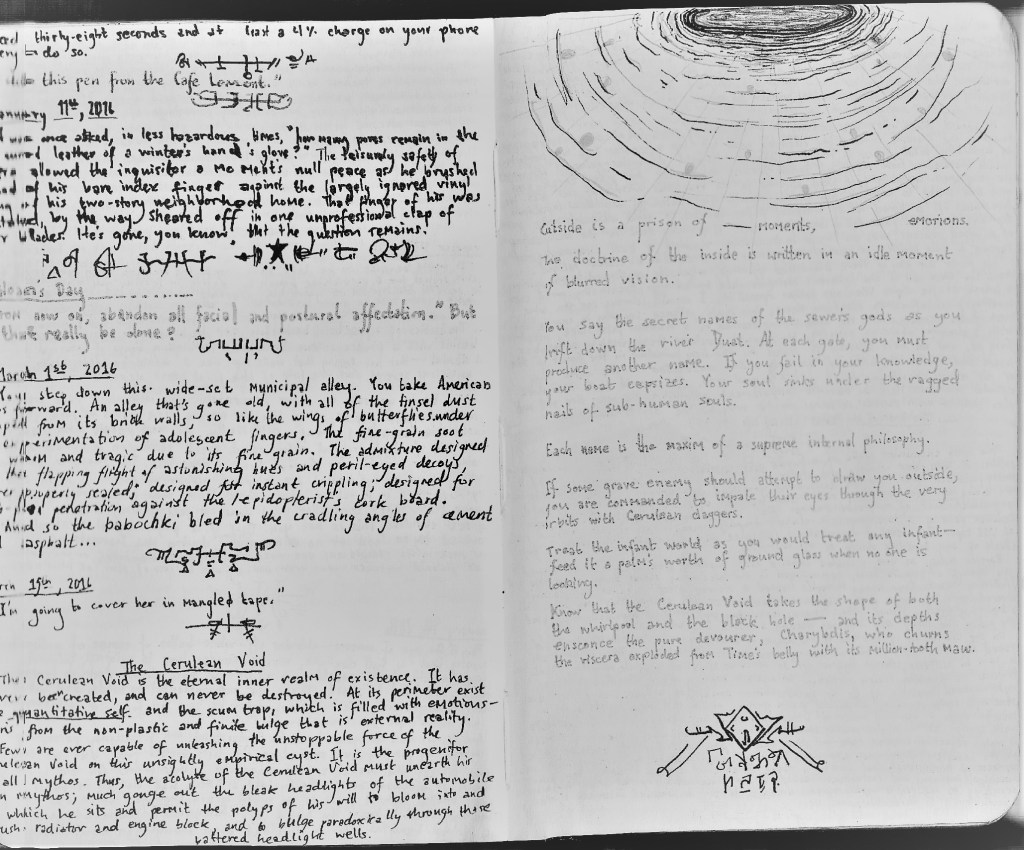 thirty-eight seconds and at least a 4% charge on your phone
to do so.
this pen from the Cafe Lament."
January 11th, 2016
I was once asked, in less hazardous times, "how many pores remain in the
leather of a winter's hand's glove?" The leisurely safety of
allowed the inquisitor a moment's null peace as he brushed
of his bare index finger against the largely ignored vinyl
of his two-story neighborhood home. That finger of his was
by the way, sheared off in one unprofessional clap of
blades. He's gone, you know, but the question remains.
Day
now on, abandon all facial and postural affectation." But
that really be done?
March 1st, 2016
You step down this wide-set municipal alley. You take American
forward. An alley that's gone old, with all of the tinsel dust
from its brick walls, so like the wings of butterflies under
experimentation of adolescent fingers. The fine-grain soot
and tragic due to its fine grain. The admixture designed
flapping flight of astonishing hues and peril-eyed decoys,
properly sealed; designed for instant crippling; designed for
penetration against the lepidopterist's cork board.
And so the babochki bled in the cradling angles of cement
asphalt...
15th, 2016
I'm going to cover her in mangled tape."
The Cerulean Void
The Cerulean Void is the eternal inner realm of existence. It has
never been created, and can never be destroyed. At its perimeter exist
quantitative self and the scum trap, which is filled with emotions—
from the non-plastic and finite bulge that is external reality.
Few are ever capable of unleashing the unstoppable force of the
Cerulean Void on this unsightly empirical cyst. It is the progenitor
all mythos. Thus, the acolyte of the Cerulean Void must unearth his
mythos; much gouge out the bleak headlights of the automobile
which he sits and permit the polyps of his will to bloom into and
radiator and engine block, and to bulge paradoxically through those
battered headlight wells.
Outside is a prison of — moments, — emotions.
The doctrine of the inside is written in an idle moment
of blurred vision.
You say the secret names of the sewer's gods as you
drift down the river Dust. At each gate, you must
produce another name. If you fail in your knowledge,
your boat capsizes. Your soul sinks under the ragged
nails of sub-human souls.
Each name is the maxim of a supreme internal philosophy.
If some grave enemy should attempt to draw you outside,
you are commanded to impale their eyes through the very
orbits with Cerulean daggers.
Treat the infant world as you would treat any infant—
feed it a palm's worth of ground glass when no one is
looking.
Know that the Cerulean Void takes the shape of both
the whirlpool and the black hole — and its depths
ensconce the pure devourer, Charybdis, who churns
the viscera exploded from Time's belly with its million-tooth maw.